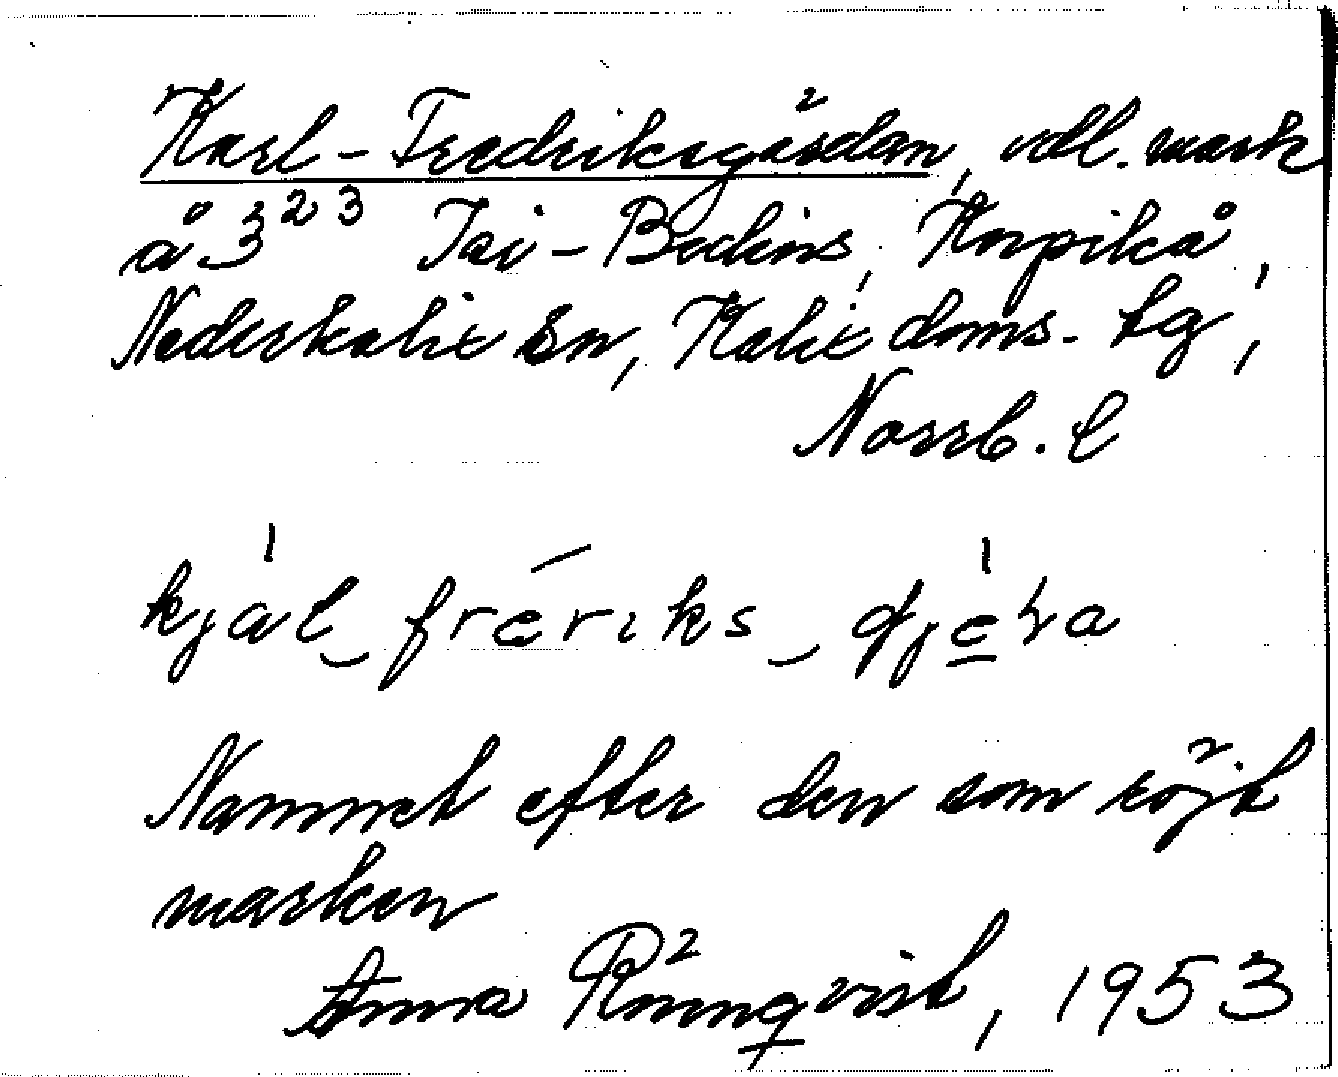 Karl-Fredriksgården, odl. mark
å 3²³ Isi-Beckins, Korpikå,
Nederkalix sn, Kalix doms. tg,
Norrb. l
kjál_fréri ks_gjęɳa
Namnet efter den som röjt
marken
Anna Rönnqvist, 1953